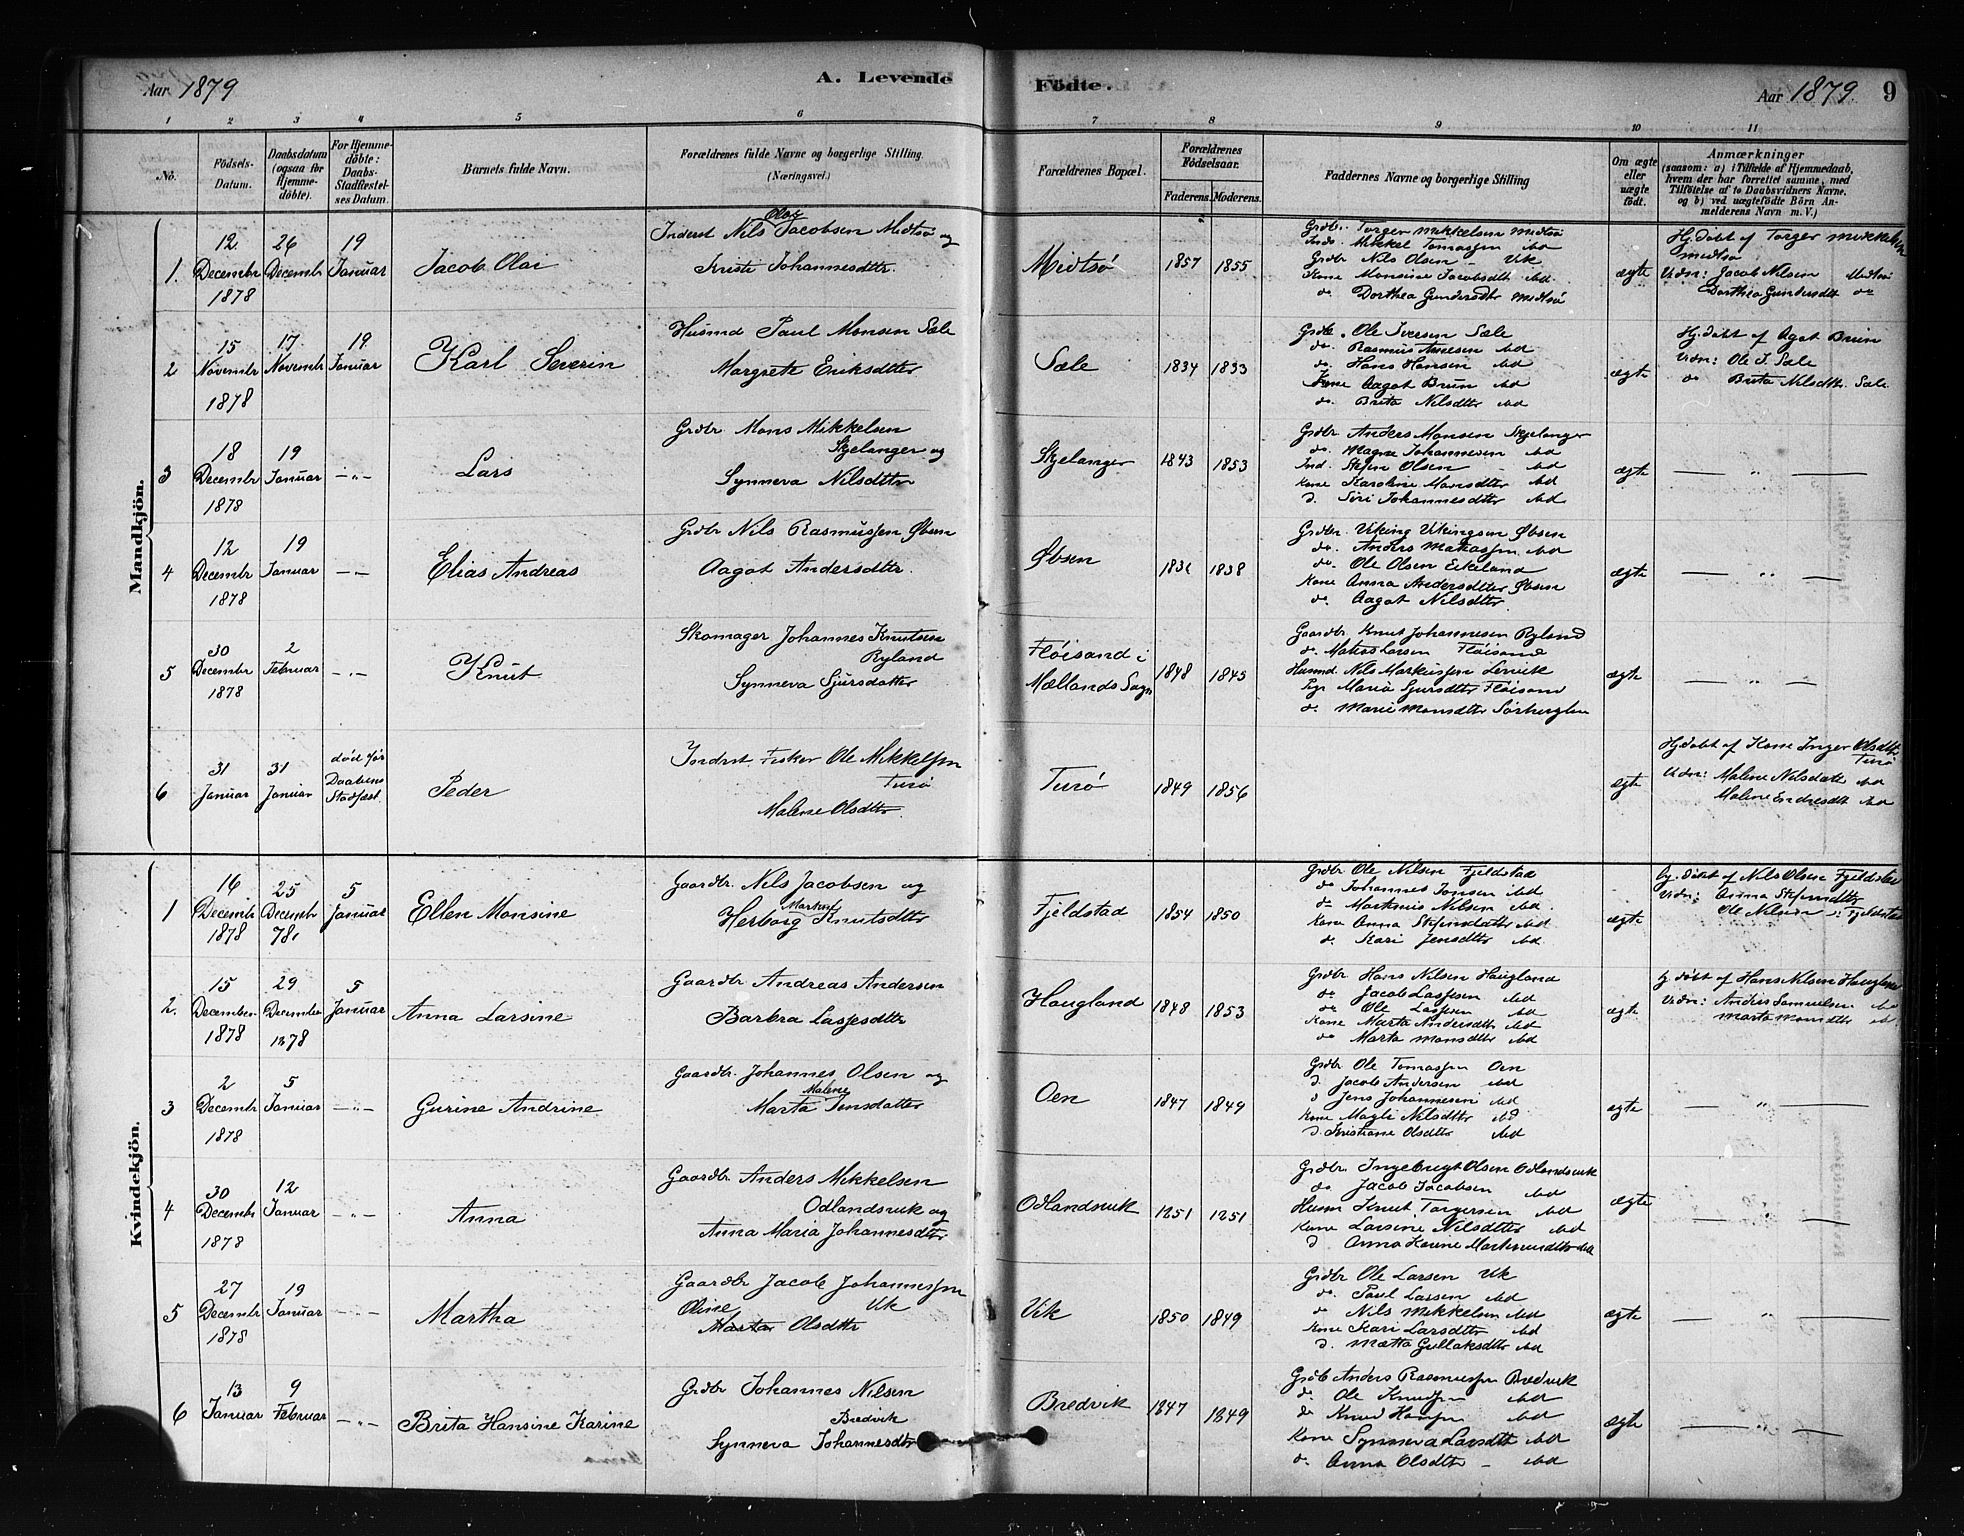 Aar 1879
A. Levende
Födte.
Aar 1879.
9
1 2 3 4 5 6 7 8 9 10 11
No.
Födsels-
Datum.
Daabsdatum
(ogsaa for
Hjemme-
döbte).
For Hjemme-
döbte:
Daabs-
Stadfæstel-
ses Datum.
Barnets fulde Navn.
Forældrenes fulde Navne og borgerlige Stilling.
(Næringsvei.)
Forældrenes Bopæl.
Forældrenes
Födselsaar.
Faderens. Moderens.
Faddernes Navne og borgerlige Stilling
Om ægte
eller
uægte
födt.
Anmærkninger
(saasom: a) i Tilfælde af Hjemmedaab,
hvem der har forrettet samme, med
Tilföielse af to Daabsvidners Navne,
og b) ved uægtefödte Börn An-
melderens Navn m. V.)
Mandkjön.
1.
12
Decembr
1878
26
Decembr
19
Januar
Jacob Olai
Olai
Inderst Nils Jacobsen Midtsø og
Kristi Johannesdttr.
Midtsø
1857 1855
Grdbr. Torger Mikkelsen Midtsø
Inds. Mikkel Tomassen ibd
Grdbr Nils Olsen Vik
Kone Monsine Jacobsdtr ibd.
do. Dorthea Gundersdtr Midtsø
ægte
Hj. døbt af Torger Mikkelsen
Midtsø
Vidn: Jacob Nilsen Midtsø
Dorthea Gundersdtr do
2
15
Novembr
1878
17
Novembr
19
Januar
Karl Severin
Husmd Paul Monsen Sæle
Margrete Eriksdtter
Sæle
1834 1833
Grdb. Ole Iversen Sæle
do. Rasmus Arnesen ibd
do. Hans Hansen ibd
Kone Aagot Brun ibd
do. Brita Nilsdtter ibd
ægte
Hj. døbt af Agot Brun
Vidn: Ole I. Sæle
do Brita Nilsdttr. Sæle
3
18
Decembr
1878
19
Januar
— „ —
Lars
Grdbr Mons Mikkelsen
Skjelanger og
Synneva Nilsdtter
Skjelanger
1843 1853
Grdbr Anders Monsen Skjelanger
do. Magne Johannesen ibd
Ind. Stefen Olsen - ibd
Kone Karoline Monsdtter ibd
d. Siri Johannesdtter ibd
ægte
— „ —
4
12
Decembr
1878
19
Januar
— —
Elias Andreas
Grdbr Nils Rasmussen Øbsen
Aagot Andersdtter.
Øbsen
1838
Grdbr. Viking Vikingsen Øbsen
do. Anders Matiassen ibd
do. Ole Olsen Eikeland
Kone Anna Andersdtter Øbsen
do. Aagot Nilsdtter.
ægte
— „ —
5
30
Decembr
1878
2
Februar
— „ —
Knut
Skomager Johannes Knutsen
Ryland
Synneva Sjursdatter
Fløisand i
Mællands Sogn
1848 1845
Gaardbr. Knut Johannesen Ryland
do. Matias Larsen Fløisand
Husmd Nils Markussen Lervik
Pige Maria Sjursdtter Fløisand
do. Marie Monsdtter
ægte
— „ —
6
31
Januar
31
Januar
død før
Daabens
Stadfæst.
Peder
Inderst Fisker Ole Mikkelsen
Turø
Malene Olsdtter.
Turø
1849 1856
ægte
Hj. døbt af Kone Inger Olsdttr
Turø
Vidn: Malene Nilsdatt ibd
Malene Endresdtt ibd
Kvindekjön.
1
16
Decembr
1878
25
Decembr
78.
5
Januar
Ellen Monsine
Gaardbr. Nils Jacobsen og
Martine
Herborg Knutsdtter
Fjeldstad
1854 1850
Grdbr Ole Nilsen Fjeldstad
do Johannes Jonsen ibd
do Martinus Nilsen ibd.
Kone Anna Stefensdatter ibd
do. Kari Jensdtter ibd.
ægte
Hj. døbt af Nils Olsen Fjeldstad
Vidn: Anna Stefensdtter
Ole Nilsen Fjeldstad
2.
15
Decembr
1878
29
Decembr
1878
5
Januar
Anna Larsine
Gaardbr Andreas Andersen
Barbra Lassesdtter
Haugland
1848 1853
Grdbr Hans Nilsen Haugland
do. Jacob Lassesen ibd
do. Ole Lassesen ibd
Kone Marta Andersdtter ibd
do Marta Monsdtter ibd
ægte
Hj. døbt af Hans Nilsen Haugland
Vidn: Anders Samuelsen ibd
Marta Monsdtter ib.
3
2
Decembr
1878
5
Januar
— „ —
Gurine Andrine
Gaardbr. Johannes Olsen og
Malene
Marta Jensdatter
Oen
1847 1849
Grdbr Ole Tomassen Oen
d. Jacob Andersen ibd
d Jens Johannesen ibd
Kone Magli Nilsdtter ibd
d. Kristiane Olsdtter ibd
ægte
— „ —
4
30
Decembr
1878
12
Januar
— „ —
Anna
Gaardbr Anders Mikkelsen
Odlandsvik og
Anna Maria Johannesdtter
Odlandsvik
1851 1851
Grdbr. Ingebrigt Olsen Odlandsvik
do Jacob Jacobsen ibd
Husm Knut Torgersen ibd
Kone Larsine Nilsdtter ibd
d Anna Karine ibd
ægte
— „ —
5
27
Decembr
1878
19
Januar
— „ —
Martha
Gaardbr Jacob Johannessen
Oline Vik
Marta Olsdtter
Vik
1850 1849
Grdbr Ole Larsen Vik
do. Paul Lassen ibd
do Nils Mikkelsen ibd
Kone Kari Larsdtter ibd
d. Mætta Gullaksdtter ibd
ægte
— „ —
6
13
Januar
9
Februar
— „ —
Brita Hansine Karine
Grdbr Johannes Nilsen
Bredvik
Synneva Johannesdtr
Bredvik
1847 1849
Grdb Anders Rasmussen Bredvik
do. Ole Knudsen ibd
do Knud Hansen ibd
Kone Synneva Larsdtt ibd
do. Anna Olsdtter - ibd
ægte
— „ —